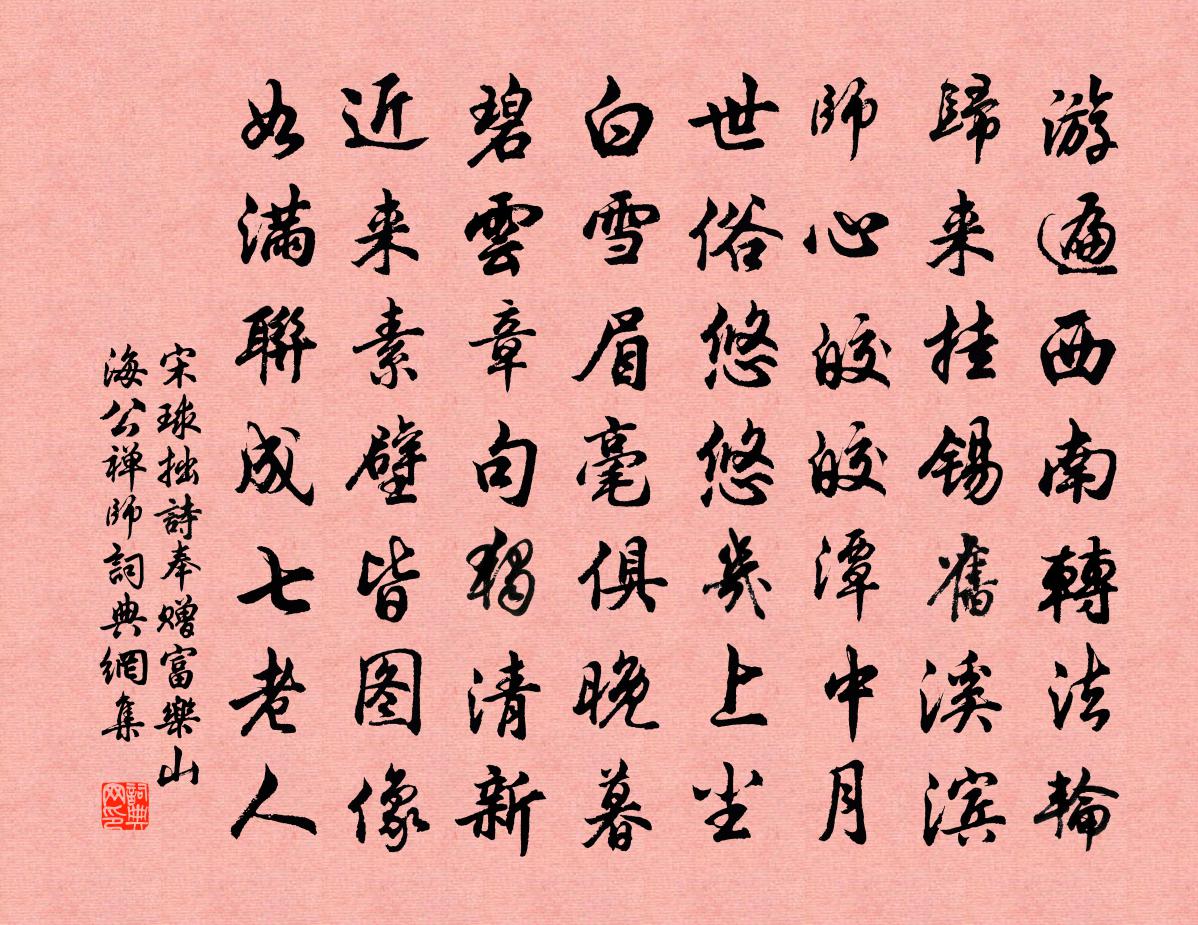 游遍西南轉法輪
歸来挂錫舊溪滨
師心皎皎潭中月
世俗悠悠几上尘
白雪眉毫俱晚暮
碧雲章句獨清新
近来素壁皆图像
如满聯成七老人
宋球拙詩奉赠富樂山
海公禅師詞典網集
詞典
网印